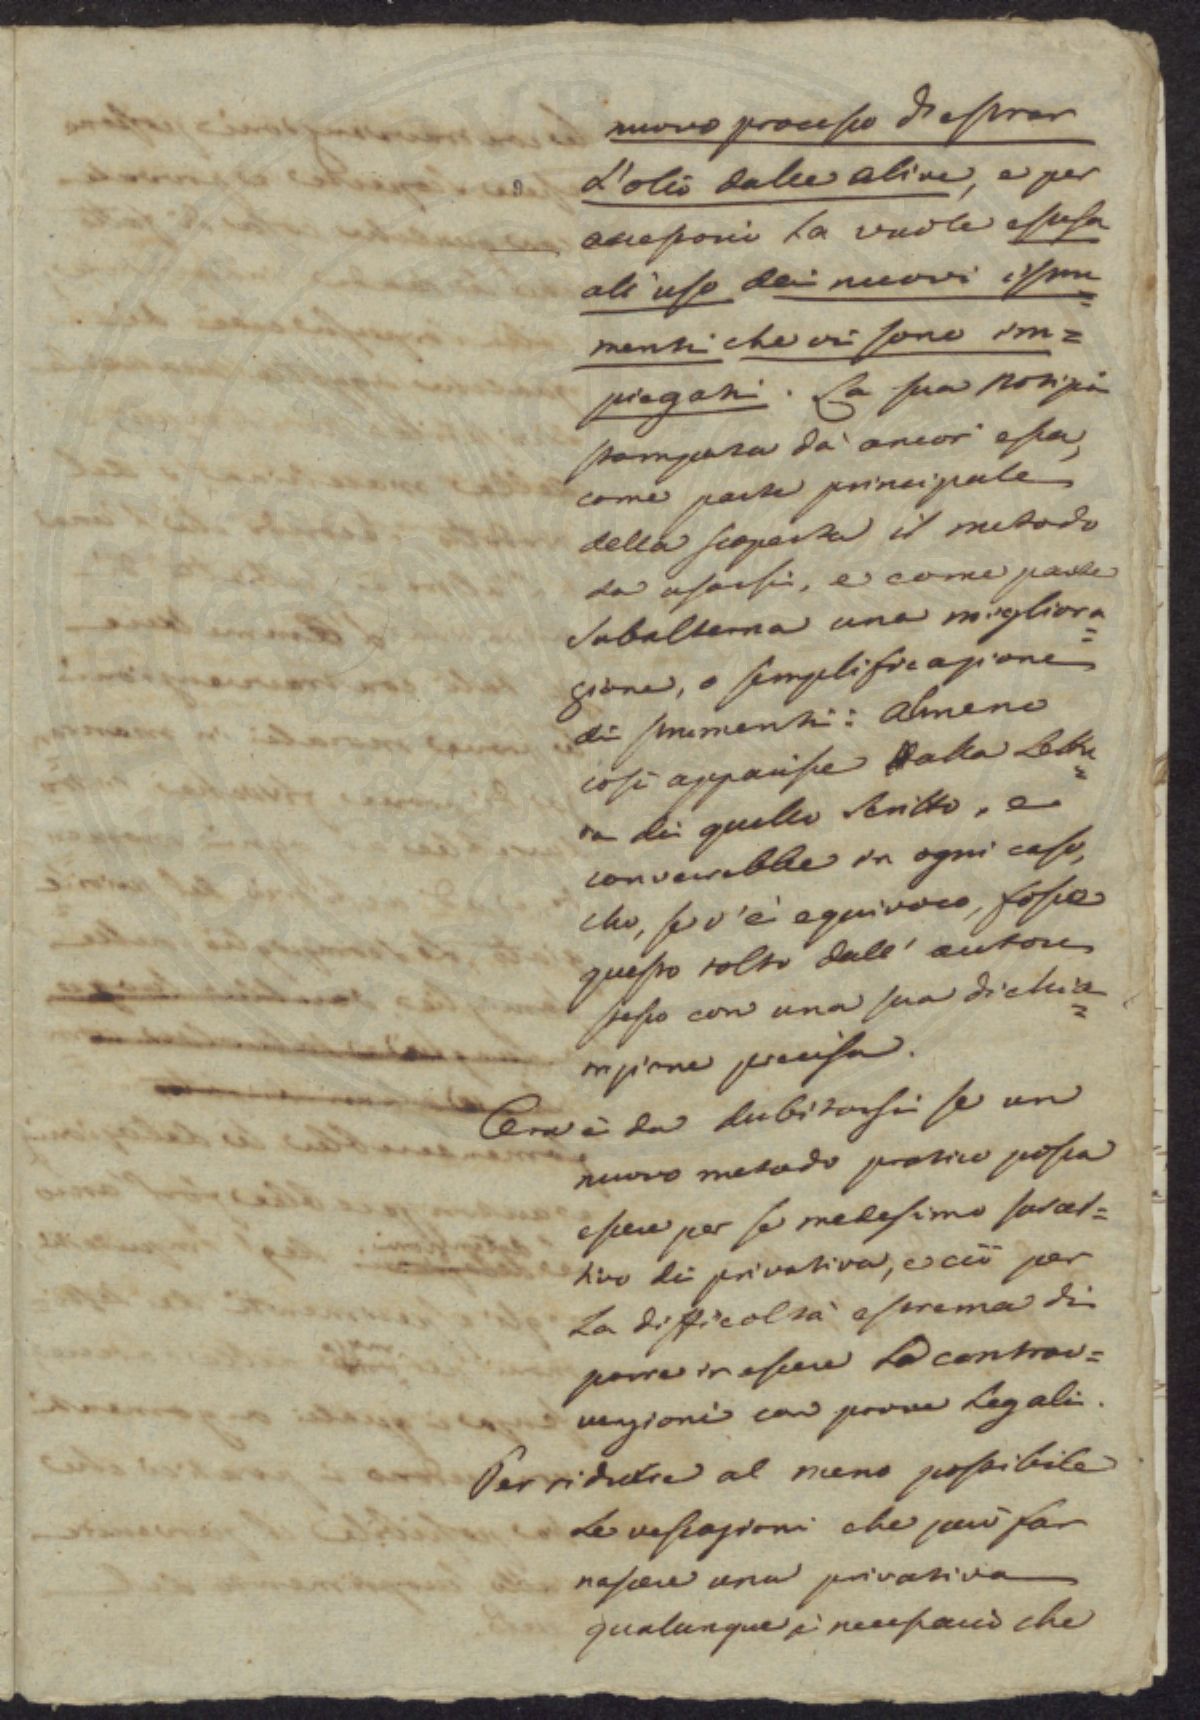 nuovo processo di estrar
L'olio dalle olive, e per
accessorio la vuole estesa
all'uso dei nuovi istru=
menti che vi sono im=
piegati. La sua Notizia
stampata dà ancor essa,
come parte principale
della scoperta il metodo
da usarsi, e come parte
Subalterna una migliora=
zione, o semplificazione
di strumenti: almeno
così apparisce dalla Lettu=
ra di quello scritto, e
converrebbe in ogni caso,
che, se v'è equivoco, fosse
questo tolto dall'autore
stesso con una sua dichia=
razione precisa.
Ora è da dubitarsi se un
nuovo metodo pratico possa
essere per se medesimo suscet=
tivo di privativa, e ciò per
La difficoltà estrema di
porre in essere Le contrav=
venzioni con prove Legali.
Per ridurre al meno possibile
Le vessazioni che può far
nascere una privativa
qualunque è necessario che